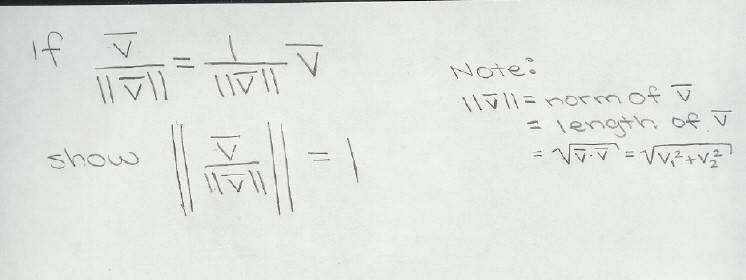 If v̅/||v̅|| = 1/||v̅|| v̅
show ||v̅/||v̅|||| = 1
Note:
||v̅|| = norm of v̅
= length of v̅
= √(v̅·v̅) = √(v₁²+v₂²)